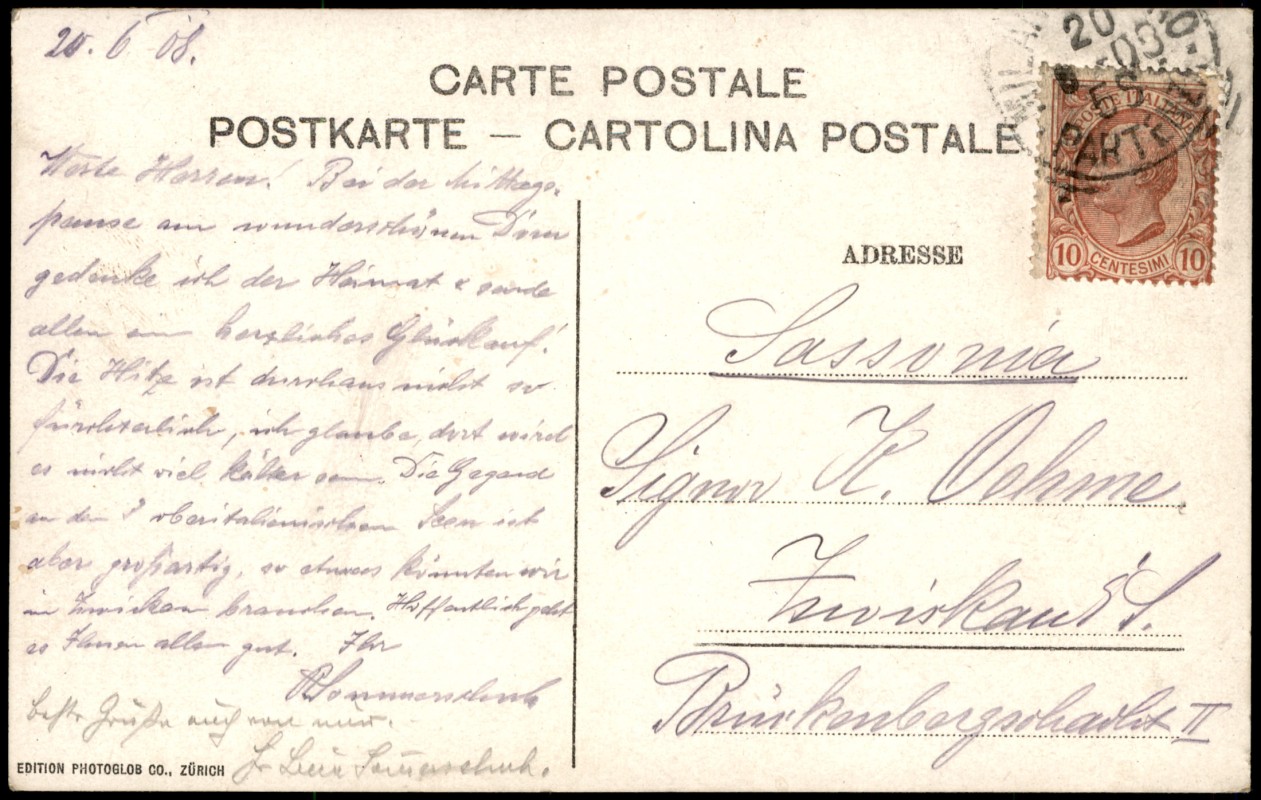 20. 6 08.
CARTE POSTALE
POSTKARTE — CARTOLINA POSTALE
Werte Herren! Bei der Mittags-
pause am wunderschönen Dom
gedenke ich der Heimat & sende
allen ein herzliches Glückauf!
Die Hitze ist durchaus nicht so
fürchterlich, ich glaube, dort wird
es nicht viel kälter sein. Die Gegend
an den 3 oberitalienischen Seen ist
aber großartig, so etwas könnten wir
in Zwickau brauchen. Hoffentlich geht
es Ihnen allen gut. Ihr
P. Sommerschuh
beste Grüße auch von mir.
Sommerschuh.
EDITION PHOTOGLOB CO., ZÜRICH
POSTE ITALIANE
10 CENTESIMI 10
20
08
PARTE
ADRESSE
Sassonia
Signor K. Oehme
Zwickau i/S.
Brückenbergschacht II